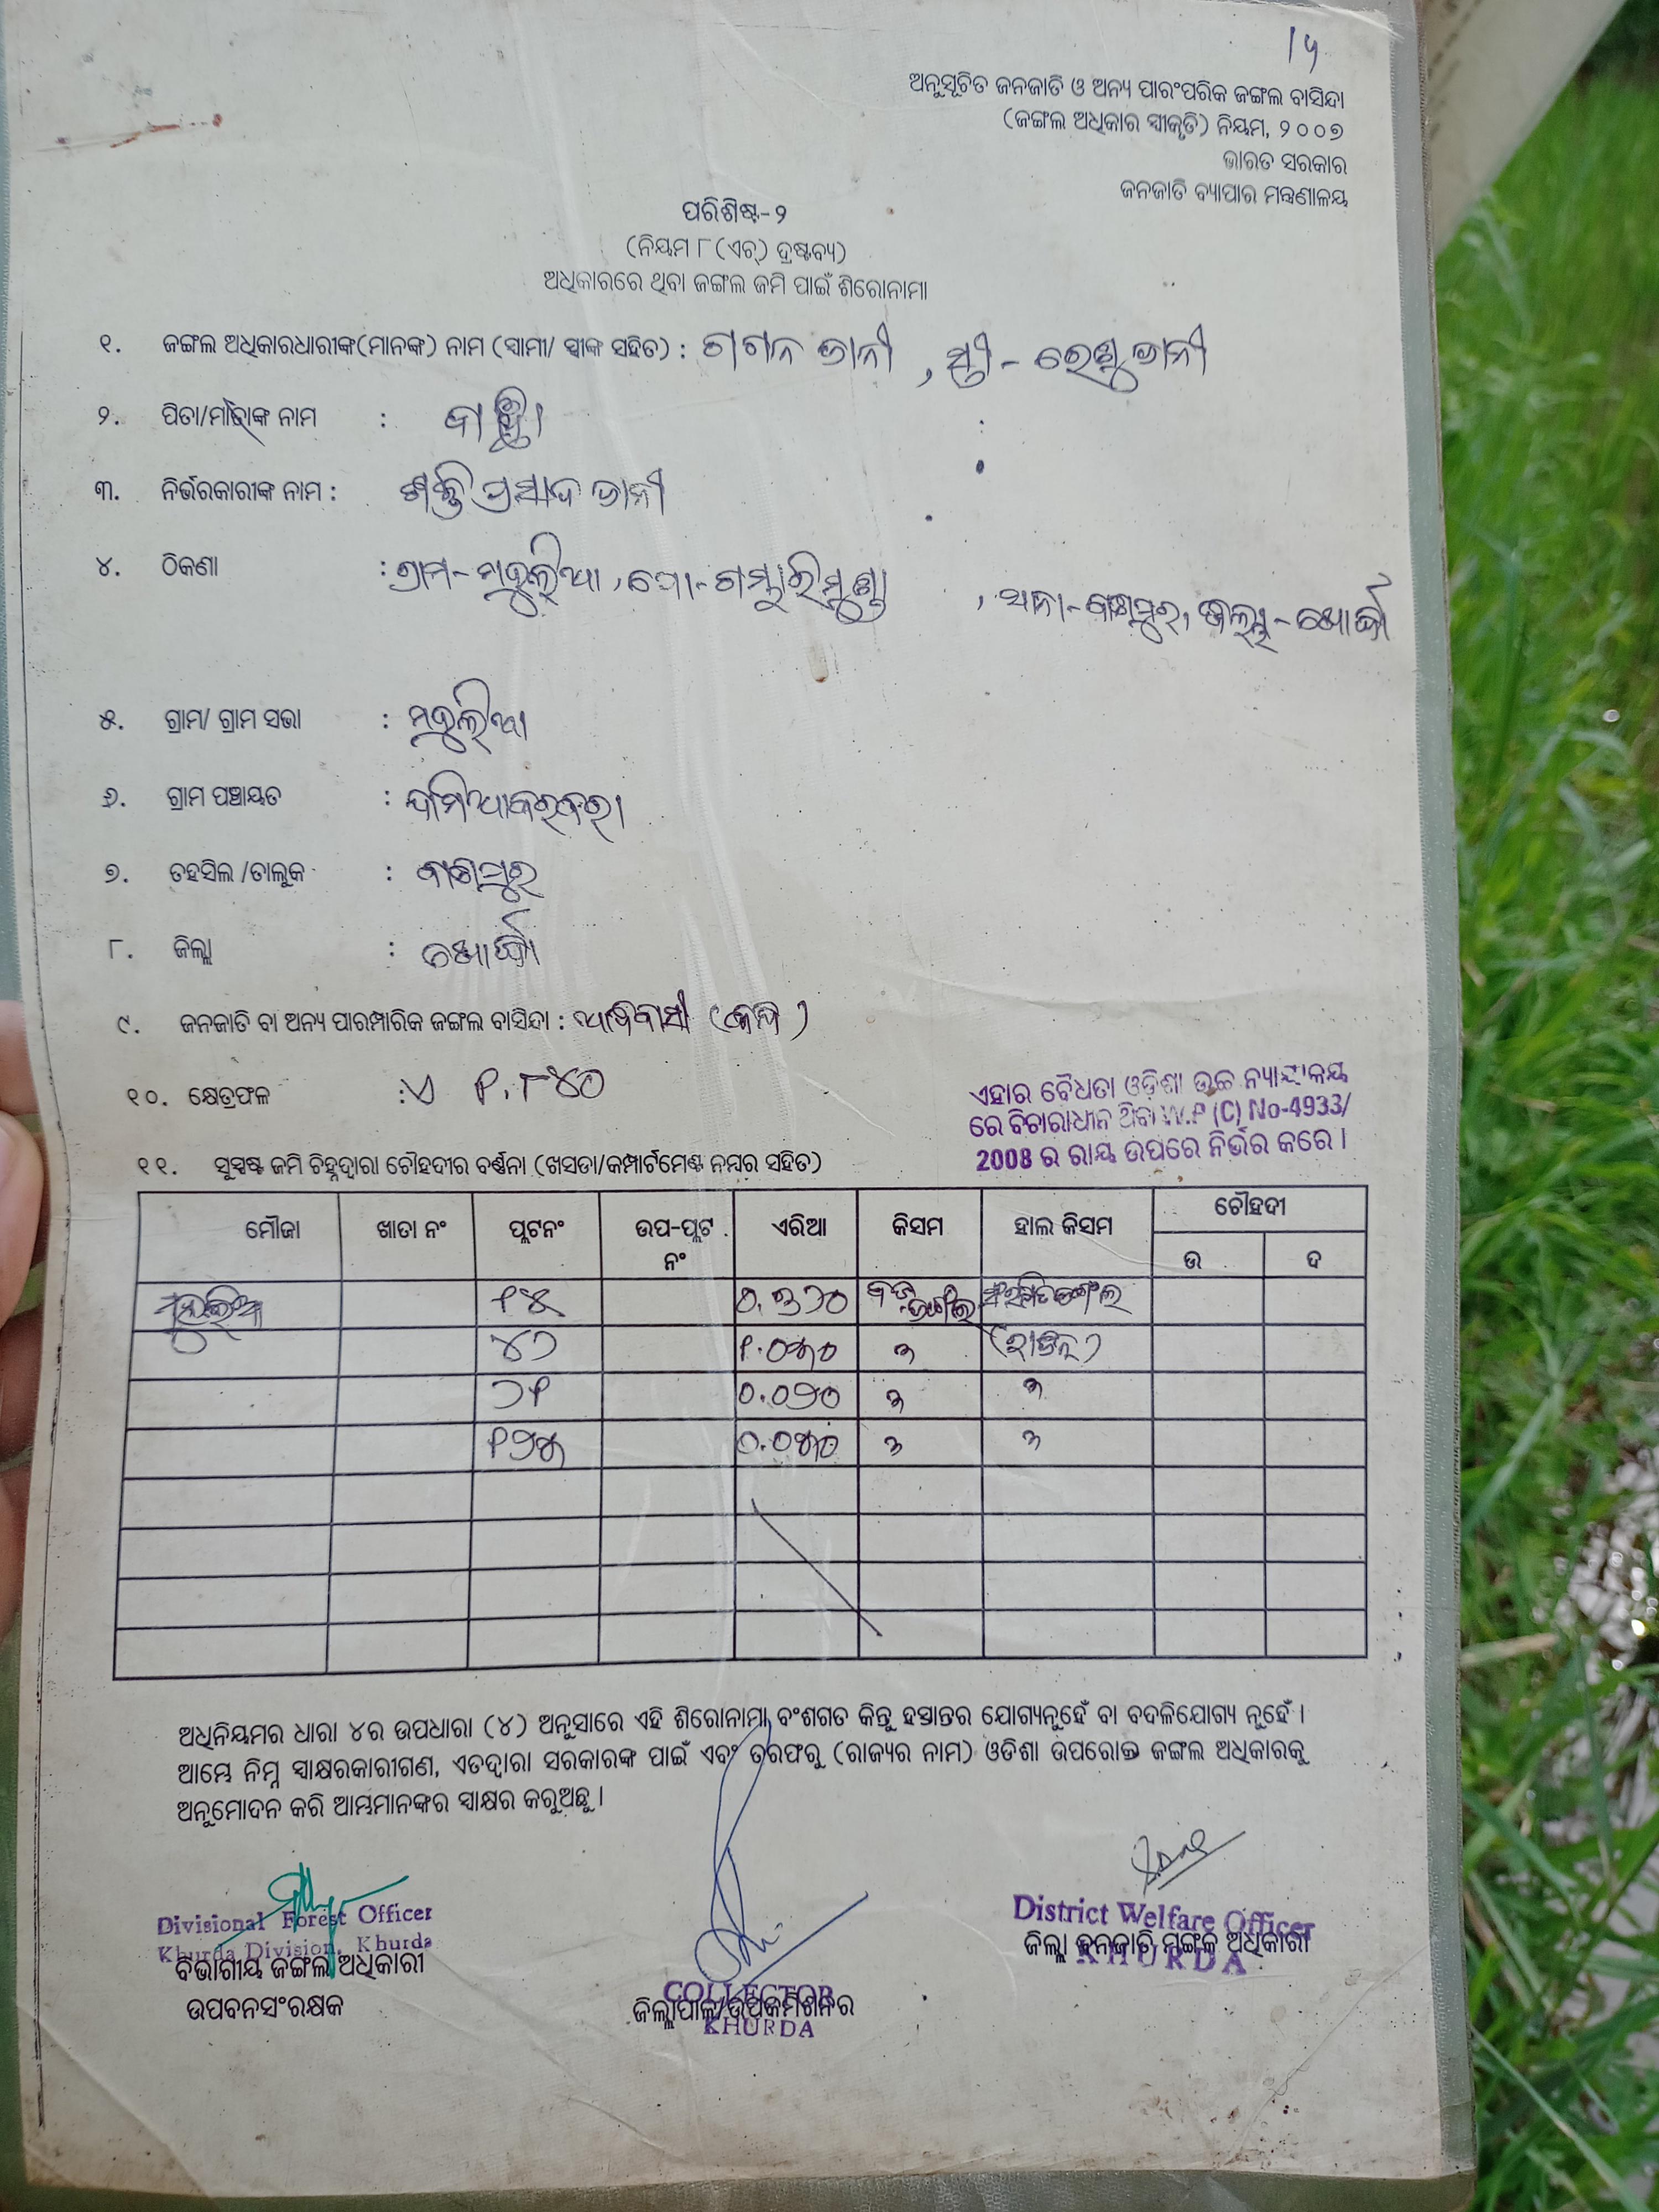 ୨୫
ଅନୁସୂଚିତ ଜନଜାତି ଓ ଅନ୍ୟ ପାରଂପରିକ ଜଙ୍ଗଲ ବାସିନ୍ଦା
(ଜଙ୍ଗଲ ଅଧିକାର ସ୍ୱୀକୃତି) ନିୟମ, ୨୦୦୭
ଭାରତ ସରକାର
ଜନଜାତି ବ୍ୟାପାର ମନ୍ତ୍ରଣାଳୟ
ପରିଶିଷ୍ଟ-୨
(ନିୟମ ୮ (ଏଚ୍) ଦ୍ରଷ୍ଟବ୍ୟ)
ଅଧିକାରରେ ଥିବା ଜଙ୍ଗଲ ଜମି ପାଇଁ ଶିରୋନାମା
୧. ଜଙ୍ଗଲ ଅଧିକାରଧାରୀଙ୍କ(ମାନଙ୍କ) ନାମ (ସ୍ୱାମୀ/ ସ୍ତ୍ରୀଙ୍କ ସହିତ) : ଗଗନ ଭାନୀ , ସ୍ତ୍ରୀ - ରେଣୁ ଭାନୀ
୨. ପିତା/ମାତାଙ୍କ ନାମ :
୩. ନିର୍ଭରକାରୀଙ୍କ ନାମ : ଶକ୍ତି ପ୍ରସାଦ ଭାନୀ
୪. ଠିକଣା : ଗ୍ରାମ- ମହୁଲିଆ , ପୋ- ଗମ୍ଭାରିମୁଣ୍ଡା , ଥାନା- ବାଣପୁର, ଜିଲ୍ଲା - ଖୋର୍ଦ୍ଧା
୫. ଗ୍ରାମ/ ଗ୍ରାମ ସଭା : ମହୁଲିଆ
୬. ଗ୍ରାମ ପଞ୍ଚାୟତ :
୭. ତହସିଲ /ତାଲୁକ : ବାଣପୁର
୮. ଜିଲ୍ଲା : ଖୋର୍ଦ୍ଧା
୯. ଜନଜାତି ବା ଅନ୍ୟ ପାରମ୍ପାରିକ ଜଙ୍ଗଲ ବାସିନ୍ଦା : ଆଦିବାସୀ (କନ୍ଧ)
୧୦. କ୍ଷେତ୍ରଫଳ : ଏ ୧.୮୪୦
ଏହାର ବୈଧତା ଓଡ଼ିଶା ଉଚ୍ଚ ନ୍ୟାୟାଳୟ
ରେ ବିଚାରାଧୀନ ଥିବା W.P (C) No-4933/
2008 ର ରାୟ ଉପରେ ନିର୍ଭର କରେ ।
୧୧. ସୁସ୍ପଷ୍ଟ ଜମି ଚିହ୍ନଦ୍ୱାରା ଚୌହଦୀର ବର୍ଣ୍ଣନା (ଖସଡା/କମ୍ପାର୍ଟମେଣ୍ଟ ନମ୍ବର ସହିତ)
ମୌଜା ଖାତା ନଂ ପ୍ଲଟନଂ ଉପ-ପ୍ଲଟ ନଂ ଏରିଆ କିସମ ହାଲ କିସମ ଚୌହଦୀ
ଉ ଦ
ମହୁଲିଆ ୧୪
୪୨ (ରାଜସ୍ୱ)
୨୧
ଅଧିନିୟମର ଧାରା ୪ର ଉପଧାରା (୪) ଅନୁସାରେ ଏହି ଶିରୋନାମା ବଂଶଗତ କିନ୍ତୁ ହସ୍ତାନ୍ତର ଯୋଗ୍ୟନୁହେଁ ବା ବଦଳିଯୋଗ୍ୟ ନୁହେଁ ।
ଆମ୍ଭେ ନିମ୍ନ ସ୍ୱାକ୍ଷରକାରୀଗଣ, ଏତଦ୍ୱାରା ସରକାରଙ୍କ ପାଇଁ ଏବଂ ତରଫରୁ (ରାଜ୍ୟର ନାମ) ଓଡିଶା ଉପରୋକ୍ତ ଜଙ୍ଗଲ ଅଧିକାରକୁ
ଅନୁମୋଦନ କରି ଆମ୍ଭମାନଙ୍କର ସ୍ୱାକ୍ଷର କରୁଅଛୁ ।
Divisional Forest Officer
Khurda Division, Khurda
ବିଭାଗୀୟ ଜଙ୍ଗଲ ଅଧିକାରୀ
ଉପବନସଂରକ୍ଷକ
COLLECTOR
ଜିଲ୍ଲାପାଳ/ଉପକମିଶନର
KHURDA
District Welfare Officer
ଜିଲ୍ଲା ଜନଜାତି ମଙ୍ଗଳ ଅଧିକାରୀ
KHURDA